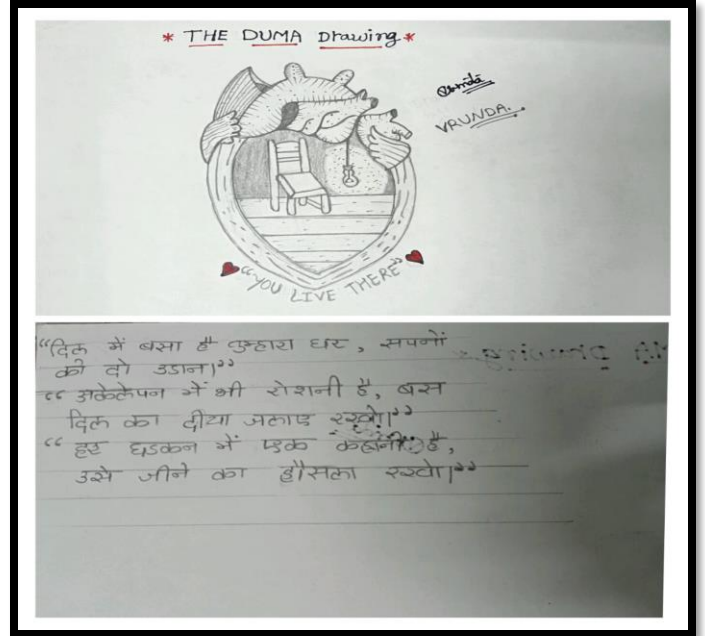 * THE DUMA Drawing *
VRUNDA.
"YOU LIVE THERE"
"दिल में बसा है तुम्हारा घर, सपनों
को दो उडान।"
"अकेलेपन में भी रोशनी है, बस
दिल का दीया जलाए रखो।"
"हर धडकन में एक कहानी है,
उसे जीने का हौसला रखो।"